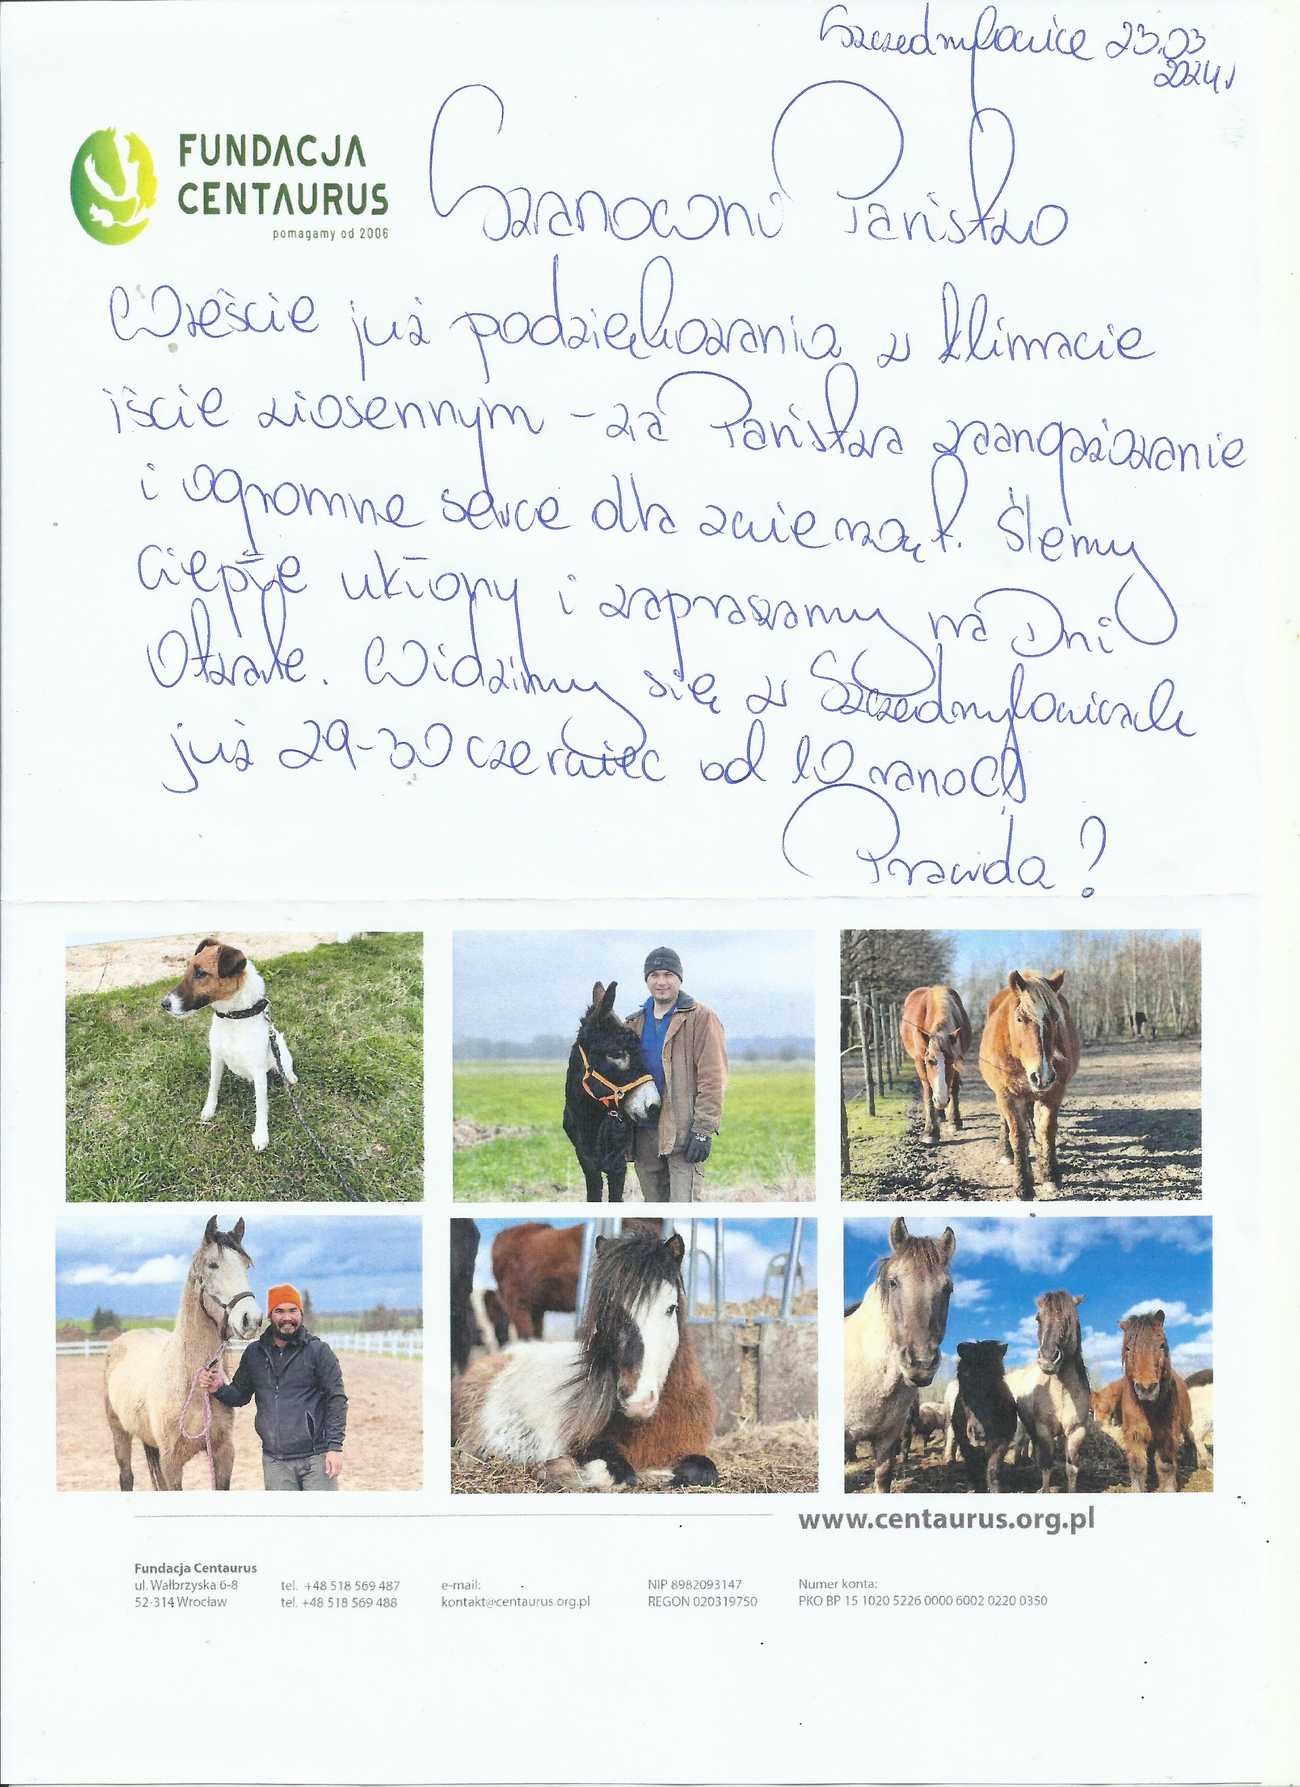 Szczedrzykowice 23.03
2024r
FUNDACJA
CENTAURUS
pomagamy od 2006
Szanowni Państwo
Wreście już podziękowania w klimacie
iście wiosennym - za Państwa zaangażowanie
i ogromne serce dla zwierząt. Ślemy
ciepłe ukłony i zapraszamy na Dni
Otwarte. Widzimy się w Szczedrzykowicach
już 29-30 czerwiec od 10 rano
Prawda?
www.centaurus.org.pl
Fundacja Centaurus
ul. Wałbrzyska 6-8 tel. +48 518 569 487 e-mail: NIP 8982093147 Numer konta:
52-314 Wrocław tel. +48 518 569 488 kontakt@centaurus.org.pl REGON 020319750 PKO BP 15 1020 5226 0000 6002 0220 0350